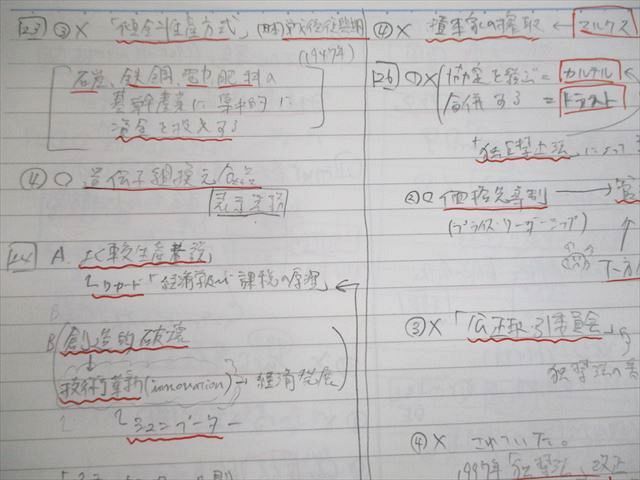 23 ③ × 「傾斜生産方式」(日本)戦後復興期
(1947年)
石炭、鉄鋼、電力、肥料の
基幹産業に集中的に
資金を投入する
④ ○ 遺伝子組換え食品
表示義務
24 A. 比較生産費説
リカード「経済学および課税の原理」
B
B 創造的破壊
技術革新(innovation) → 経済発展
シュンペーター
④ × 資本家の搾取 ← マルクス
26 ① × 協定を結ぶ = カルテル
合併する = トラスト
独占禁止法によって
② ○ 価格先導制 →
(プライス・リーダーシップ)
下方
③ × 「公正取引委員会」
独禁法の
④ × されていた。
1997年「独禁法」改正